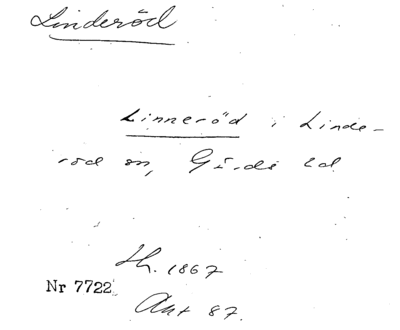 Linderöd
Linneröd i Linde-
röd sn, Gärds hd
Th. 1867
Nr 7722
Akt 87.